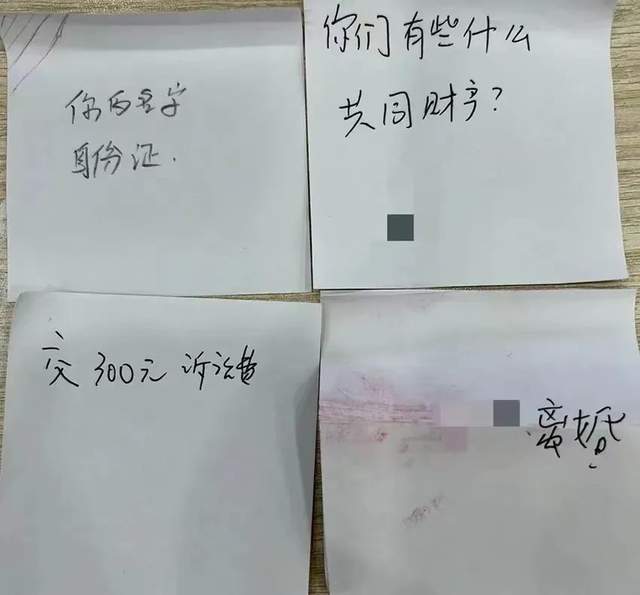 你的名字
身份证.
你们有些什么
共同财产?
交 300元 诉讼费
离婚